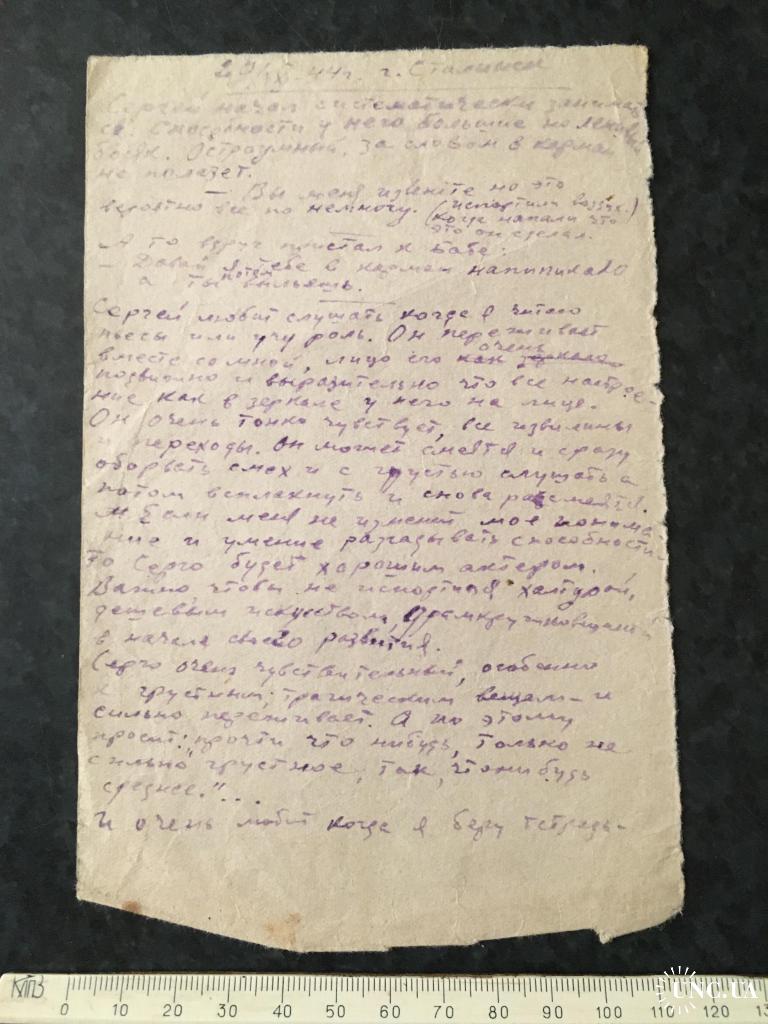 29/IX-44г. г. Сталинск
Сергей начал систематически занимать
ся. Способности у него большие но ленив
боек. Остроумный, за словом в карман
не полезет.
— Вы меня извените но это
вероятно все по немногу. (испортили воздух.)
(когда напали что
это он сделал.
А то вдруг пристал к бабе:
— Давай я тебе в карман напипикаю
а ты потом выльешь.
Сергей любит слушать когда я читаю
пьесы или учу роль. Он переживает
вместе со мной, лицо его как зеркало очень
позволно и выразительно что все настрое-
ние как в зеркале у него на лице.
Он очень тонко чувствует, все извилины
и переходы. Он может смеятся и сразу
оборвать смех и с грустью слушать а
потом всплакнуть и снова расмеятся.
Если меня не изменит мое понима
ние и умение разгадывать способности
то Серго будет хорошим актером.
Важно, чтобы не испортился халтурой,
дешевым искуством,
в начале своего развития.
Серго очень чувствительный, особенно
к грустным, трагическим вещам – и
сильно переживает. А по этому
просит: "прочти что нибудь, только не
сильно грустное, так, что нибудь
среднее."...
И очень любит когда я беру тетрадь-
КТПЗ
0 10 20 30 40 50 60 70 80 90 100 110 120 13
UNC.UA